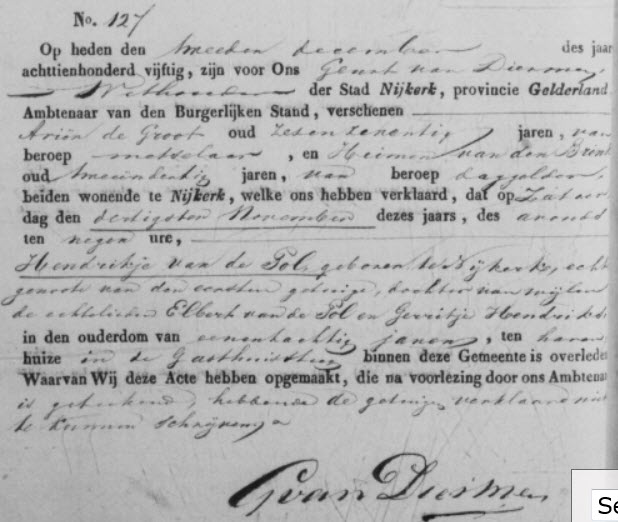 No. 127
Op heden den tweeden december des jaar
achttienhonderd vijftig, zijn voor Ons Geurt van Diermen,
Wethouder der Stad Nijkerk, provincie Gelderland
Ambtenaar van den Burgerlijken Stand, verschenen
Ariën de Groot oud zesenzeventig jaren, van
beroep metselaar, en Heimen van den Brink
oud jaren, van beroep daggelder,
beiden wonende te Nijkerk, welke ons hebben verklaard, dat op Zatur
dag den dertigsten November dezes jaars, des avonds
ten negen ure,
Hendrikje van de Pol, geboren te Nijkerk, echt
genoote van den eersten getuige, dochter van wijlen
de echtelieden Elbert van de Pol en Gerritje Hendriks
in den ouderdom van eenentachtig jaren, ten haren
huize in de binnen deze Gemeente is overlede
Waarvan Wij deze Acte hebben opgemaakt, die na voorlezing door ons Ambtenaa
is geteekend, hebbende de getuigen verklaard niet
te kunnen schrijven
GvanDiermen
Se